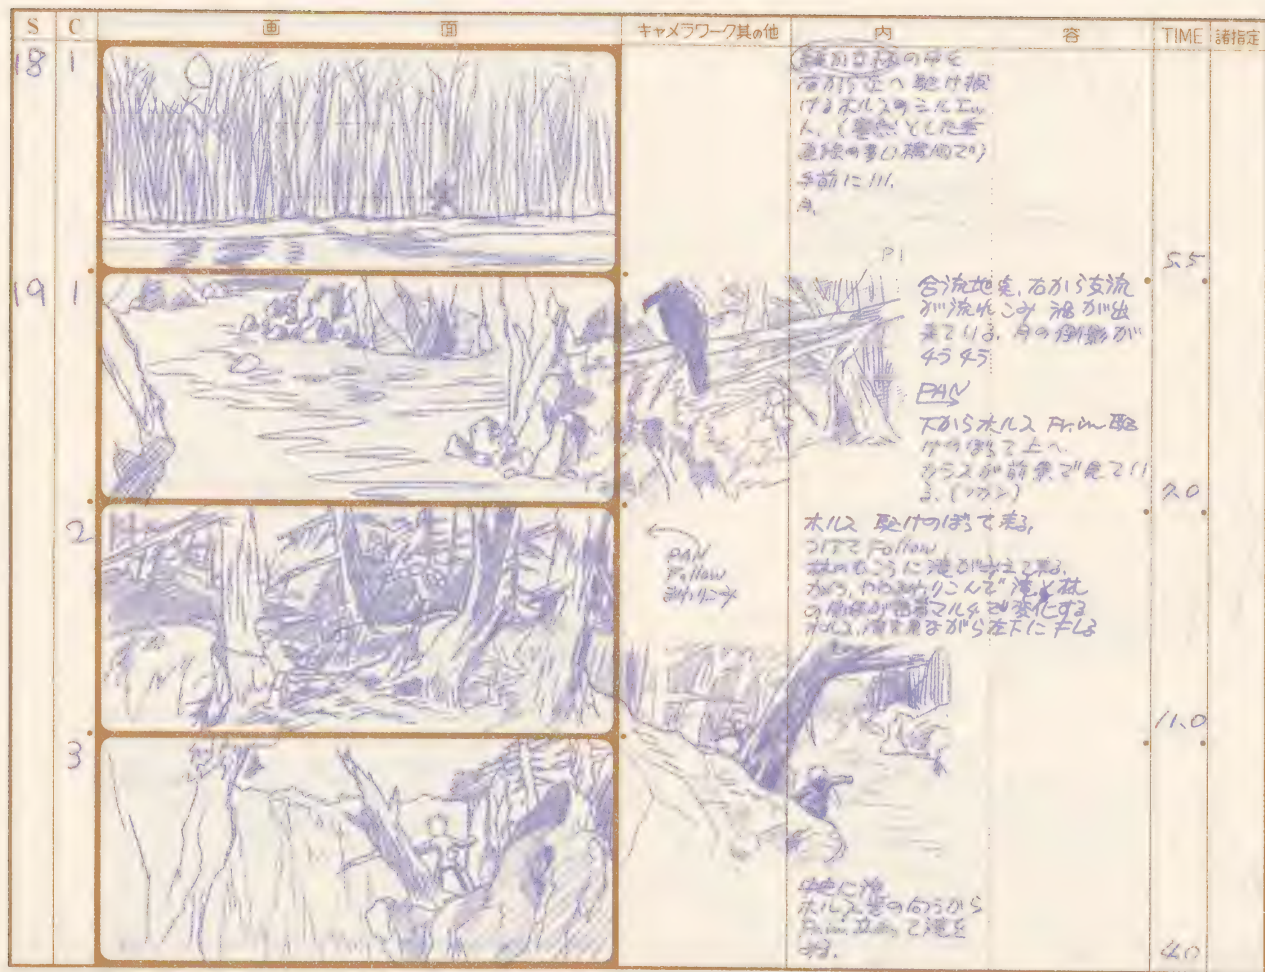 S C 画面 キャメラワーク其の他 内容 TIME 諸指定
18 1
の中を
右から左へ駆け抜
けるホルスのシルエッ
ト、(とした垂
直線の多い構図で)
手前に川、
月。
5.5
P1
19 1
合流地点、右から支流
が流れこみ 渦が出
来ている。月の倒影が
チラチラ
PAN
下からホルス Fr.in 駆
けのぼって上へ
カラスが前景で見てい
る。(フカン)
7.0
2
PAN
Follow
ホルス 駆けのぼって来る。
つけて Follow
林のむこうに滝がみえて来る。
こんで滝と林
の が マルチで変化する
ホルス、滝を見ながら左下に
11.0
3
中央に滝
ホルス 岩の向うから
Fr.in 立って滝を
みる。
4.0